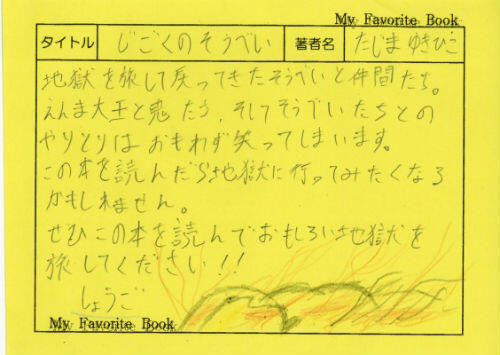 My Favorite Book
タイトル じごくのそうべい 著者名 たじまゆきひこ
地獄を旅して戻ってきたそうべいと仲間たち。
えんま大王と鬼たち、そしてそうべいたちとの
やりとりはおもわず笑ってしまいます。
この本を読んだら地獄に行ってみたくなる
かもしれません。
ぜひこの本を読んでおもしろい地獄を
旅してください!!
しょうご
My Favorite Book